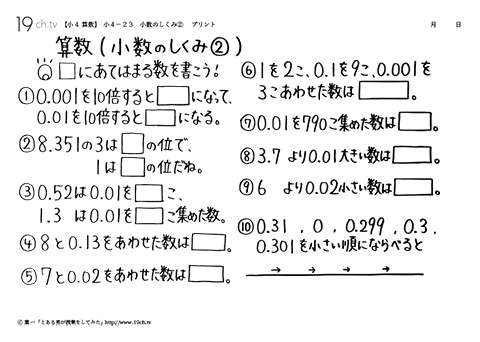 19ch.tv 【小4 算数】 小4-23 小数のしくみ② プリント 月 日
算数(小数のしくみ②)
□にあてはまる数を書こう!
①0.001を10倍すると□になって、
0.01を10倍すると□になる。
②8.351の3は□の位で、
1は□の位だね。
③0.52は0.01を□こ、
1.3は0.01を□こ集めた数。
④8と0.13をあわせた数は□。
⑤7と0.02をあわせた数は□。
⑥1を2こ、0.1を9こ、0.001を
3こあわせた数は□。
⑦0.01を790こ集めた数は□。
⑧3.7より0.01大きい数は□。
⑨6より0.02小さい数は□。
⑩0.31, 0, 0.299, 0.3,
0.301を小さい順にならべると
→ → → →
Ⓒ葉一「とある男が授業をしてみた」http://www.19ch.tv